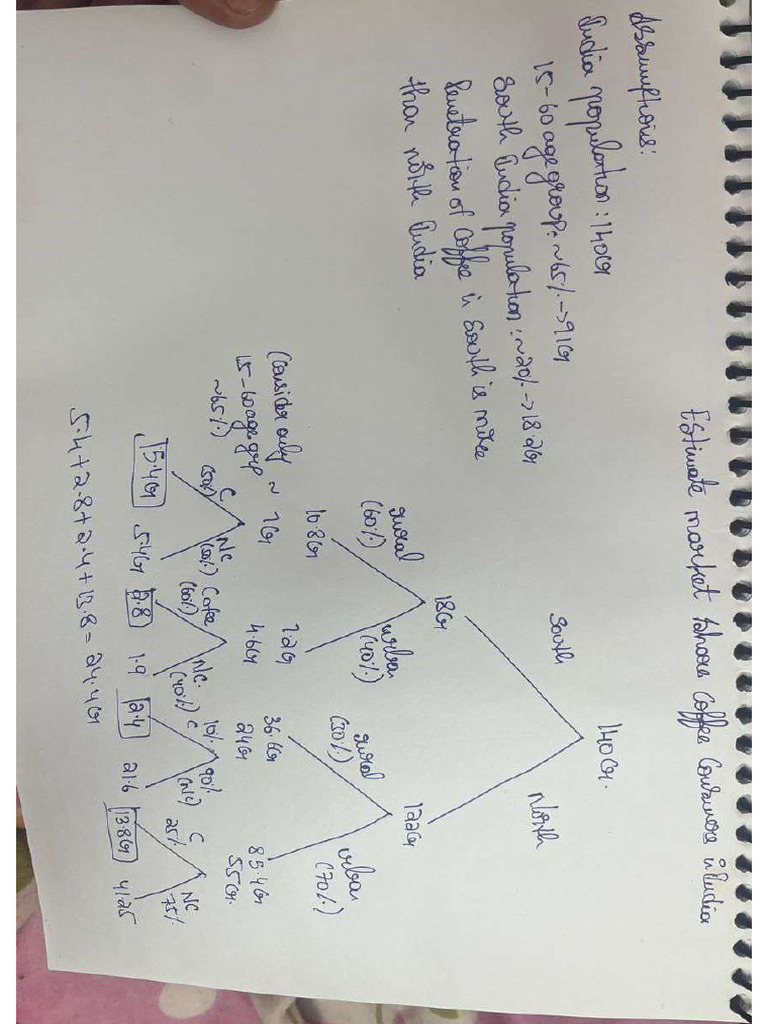 Estimate market share Coffee Consumers in India
Assumptions:
India population: 140Cr
15-60 age group: ~65% → 91Cr
South India population: ~20% → 18.2Cr
Penetration of Coffee in South is more
than north India
140Cr.
South
North
18Cr
122Cr
rural
(60%)
urban
(40%)
rural
(30%)
urban
(70%)
10.8Cr
7.2Cr
36.6Cr
85.4Cr
(Consider only
15-60 age grp
~65%)
~ 7Cr
4.6Cr
24Cr
55Cr.
C
(50%)
NC
(50%)
Coffee
(60%)
NC.
(40%)
C
10%
90%
(NC)
C
25%
NC
75%
5.4Cr
5.4Cr
2.8
1.9
2.4
21.6
13.8Cr
41.25
5.4+2.8+2.4+13.8 = 24.4Cr